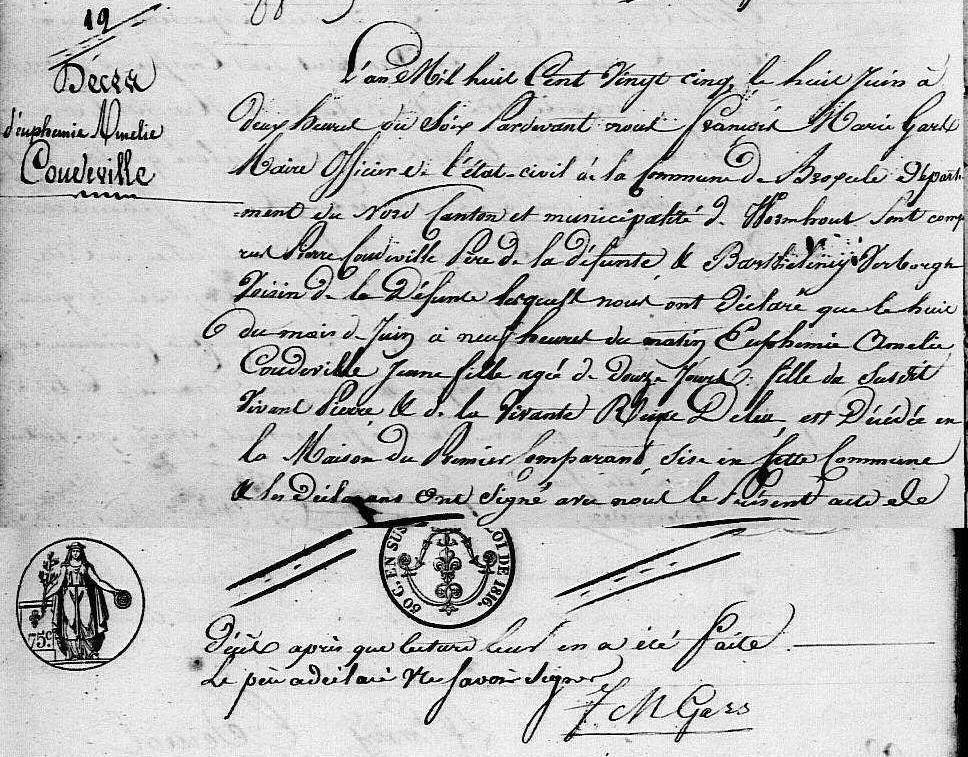 19
Décès
d'euphemie Amelie
Coudeville
L'an Mil huit Cent Vingt cinq, le huit Juin à
deux heures du Soir Pardevant nous François Marie Gars
Maire Officier de l'état-civil de la Commune de Broxeele départe-
-ment du Nord Canton et municipalité de Wormhout Sont compa
rus Pierre Coudeville Père de la défunte & Barthelemy Verborgh
Voisin de la Défunte lesquels nous ont Déclaré que le huit
du mois de Juin à neuf heures du matin Euphemie Amelie
Coudeville Jeune fille agée de Douze Jours fille du Susdit
Vivant Pierre & de la Vivante Reine est Décédée en
la Maison du Premier Comparant Sise en Cette Commune
& les déclarans Ont Signé avec nous le Présent acte de
50 C. EN SUS LOI DE 1816
75 c.
Décès après que lecture leur en a été faite
Le père a déclaré ne savoir signer
F. M Gars